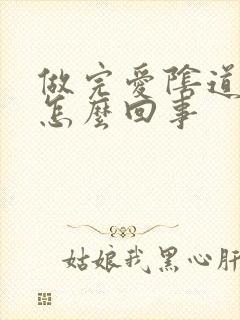 做完爱陰道
怎麼回事
姑娘我黑心肝